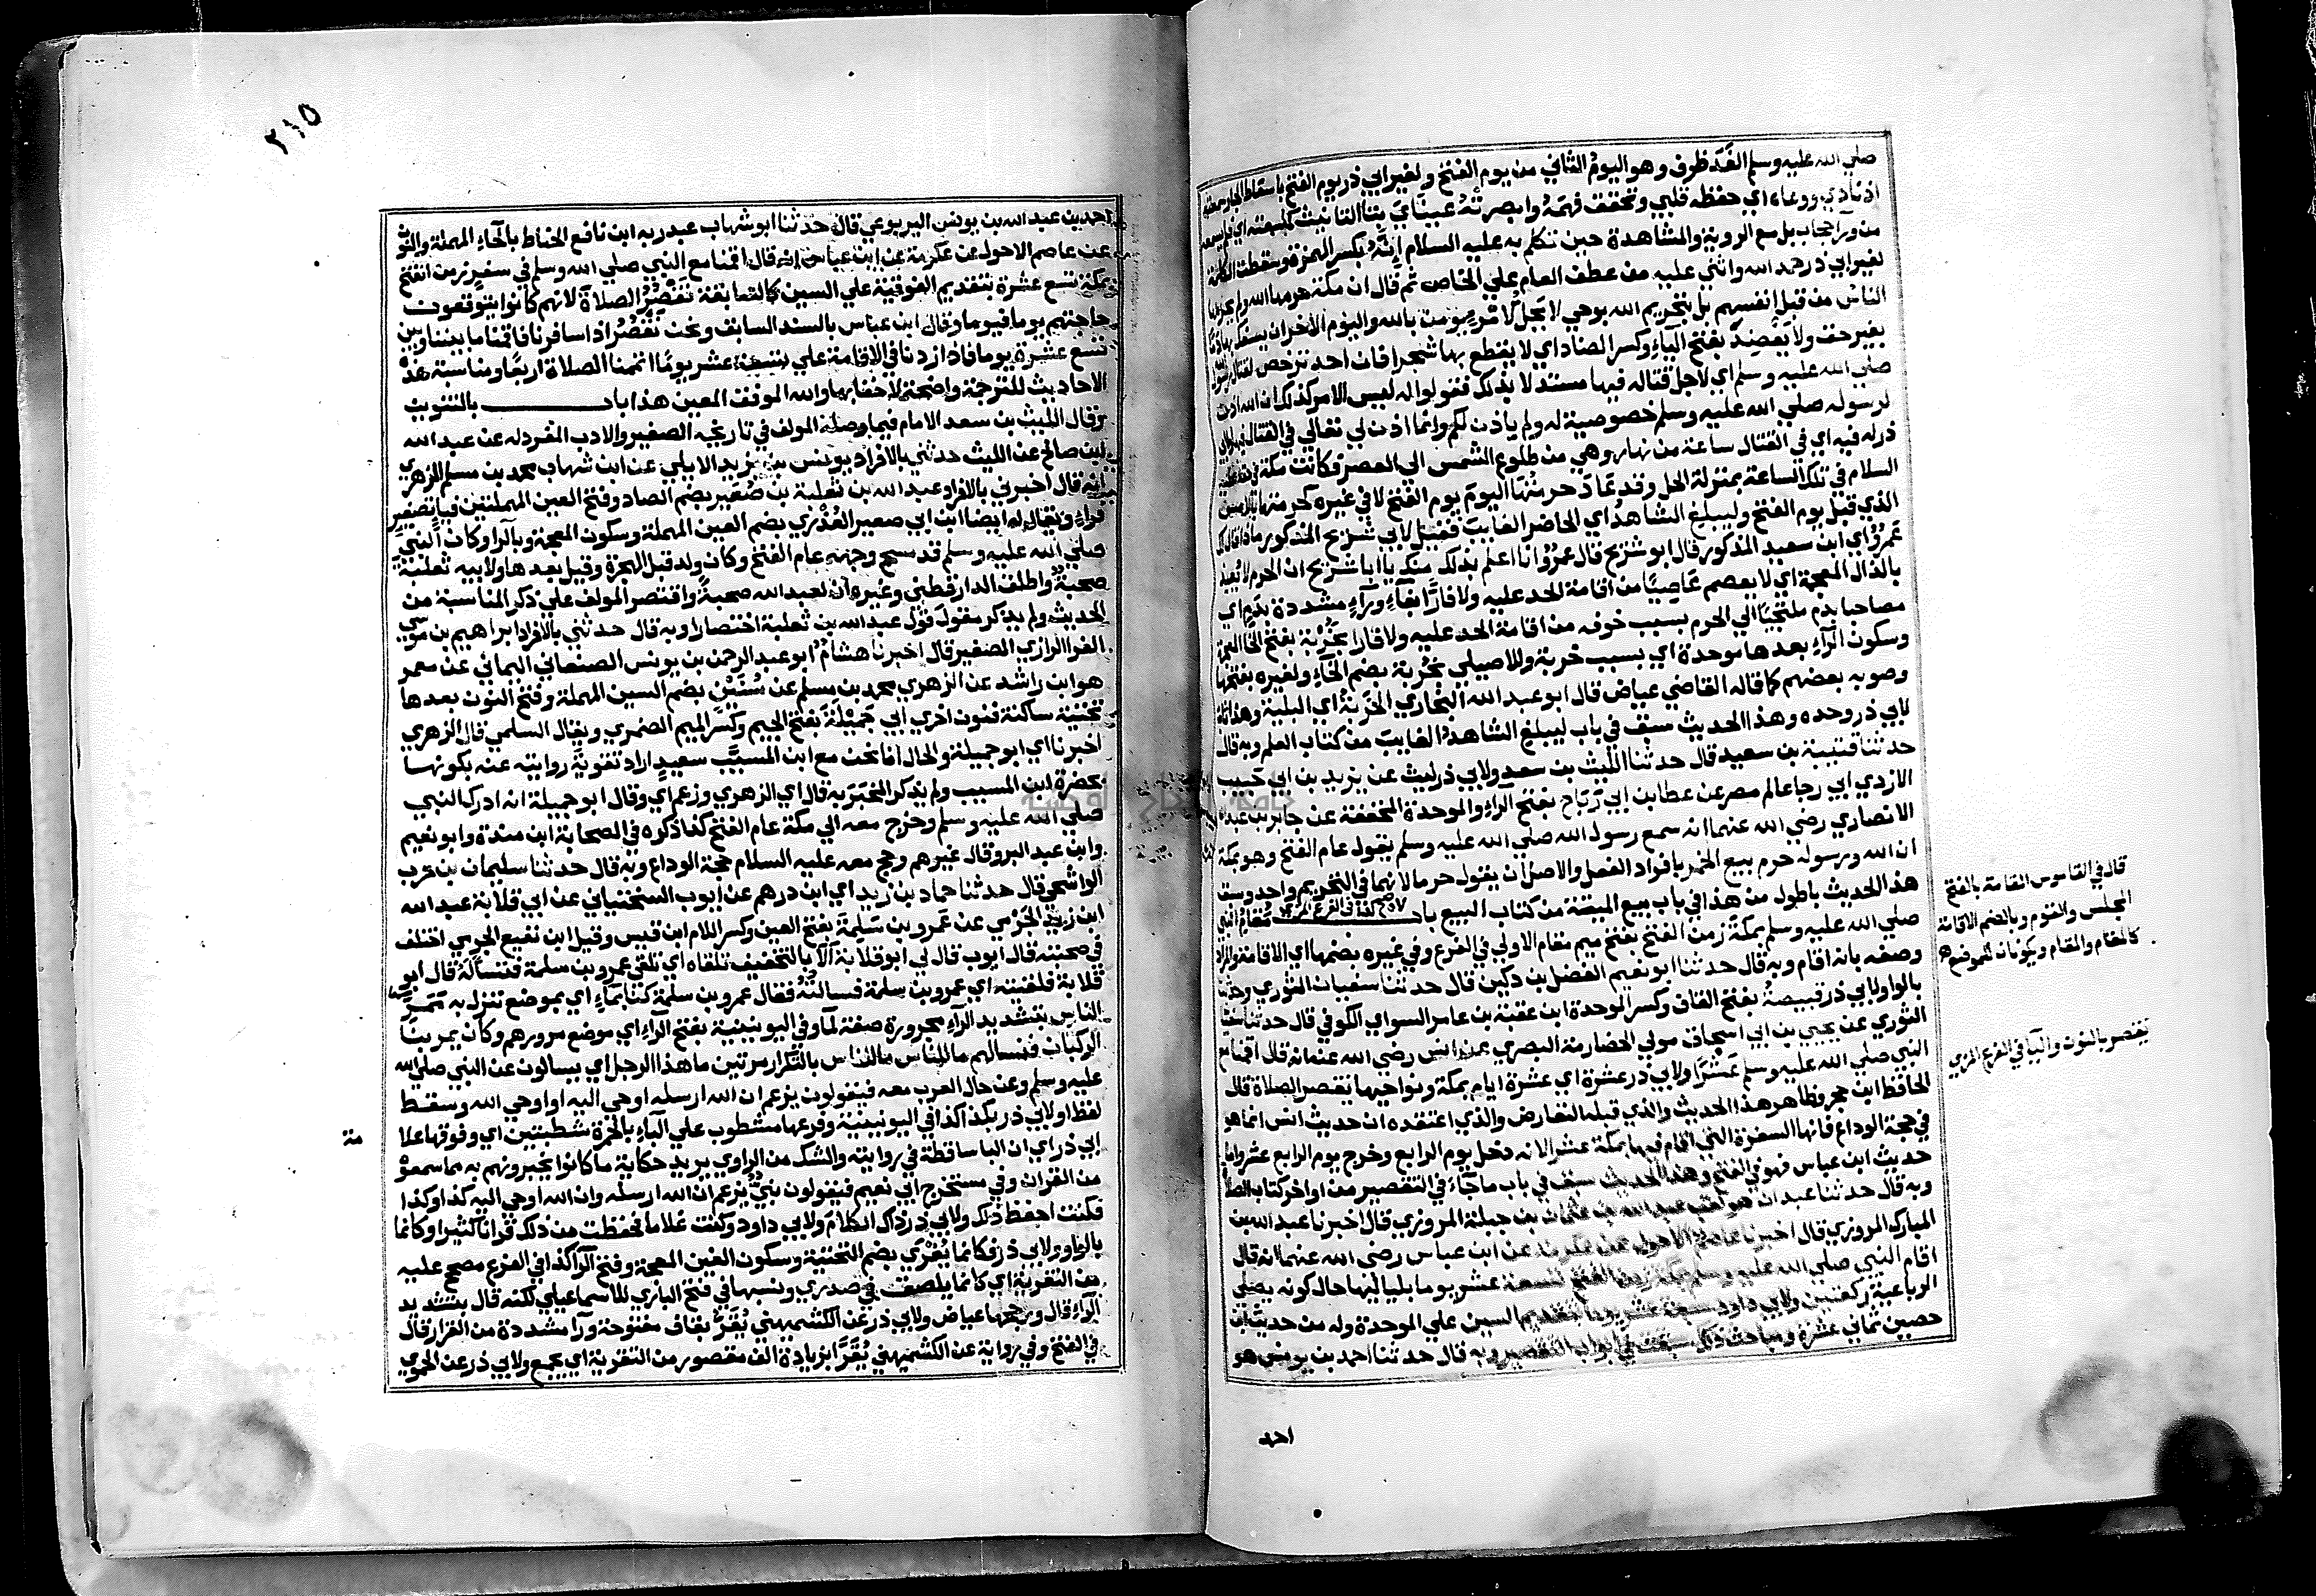 صلي الله عليه وسلم الغَدَ ظرف وهو اليومُ الثاني من يوم الفتح ولغير ابي ذر يوم الفتح باسقاط الجار سمعته
اذناي ووعاه اي حفظه قلبي وتحقق فهمَهُ وابصرتْهُ عينايَ بتا التانيث كسمعته اي فلم يسمعه
من ورآ حجاب بل مع الروية والمشاهدة حين تكلم به عليه السلام إنَّهُ بكسر الهمزة وسقطت الكلمة
لغير ابي ذر حمد الله واثني عليه من عطف العام علي الخاص ثم قال ان مكة حرمها الله ولم يحرمها
الناس من قبل انفسهم بل بتحريم الله بوحي لا يحل لامرئ يومن بالله واليوم الاخر ان يسفك بها دمًا
بغير حق ولا يَعْضِدَ بفتح اليآء وكسر الضاد اي لا يقطع بها شجرا فان احد ترخص لقتال رسول الله
صلي الله عليه وسلم اي لاجل قتاله فيها مستدلا بذلك فقولوا له ليس الامر كذلك ان الله اذن
لرسوله صلي الله عليه وسلم خصوصية له ولم ياذن لكم وانما اذن لي تعالي في القتال فيها
ذر له فيه اي في القتال ساعة من نهار وهي من طلوع الشمس الي العصر فكانت مكة في حقه عليه
السلام في تلك الساعة بمنزلة الحل وقد عادت حرمتها اليومَ يوم الفتح لا في غيره كحرمتها بالامس
الذي قبل يوم الفتح وليبلغ الشاهدُ اي الحاضر الغايبَ فقيل لابي شريح المذكور ماذا قال لك
عَمرٌو اي ابن سعيد المذكور قال ابو شريح قال عمرو انا اعلم بذلك منك يا ابا شريح ان الحرم لا يُعيذ
بالذال المعجمة اي لا يعصم عَاصِيًا من اقامة الحد عليه ولا فارًّا بفآءٍ ورآءٍ مشددة بدَمٍ اي
مصاحبا بدم ملتجيًا الي الحرم بسبب خوفه من اقامة الحد عليه ولا فارا بخَرْبة بفتح الخا المعجمة
وسكون الرآء بعدها موحدة اي بسبب خربة وللاصيلي بخُربة بضم الخآء ولغيره بفتحها
وصوبه بعضهم كما قاله القاضي عياض قال ابو عبد الله البخاري الخَربةُ اي البلية وهذا ثابت
لابي ذر وحده وهذا الحديث سبق في باب ليبلغ الشاهدُ الغايبَ من كتاب العلم وبه قال
حدثنا قتيبة بن سعيد قال حدثنا الليث بن سعد ولابي ذر ليث عن يزيد بن ابي حبيب
الازدي ابي رجا عالم مصر عن عطا بن ابي رَبَاح بفتح الرآء والموحدة المخففة عن جابر بن عبد الله
الانصاري رضي الله عنهما انه سمع رسول الله صلي الله عليه وسلم يقول عام الفتح وهو بمكة
ان الله ورسوله حرم بيع الخمر بافراد الفعل والاصل ان يقول حرما لانهما في التحريم واحد وسبق
هذا الحديث باطول من هذا في باب بيع الميتة من كتاب البيع باب مُقامِ النبي
صلي الله عليه وسلم بمكةَ زمن الفتح بفتح ميم مقام الاولي في الفرع وفي غيره بضمها اي الاقامة والمراد
وصفه بانه اقام وبه قال حدثنا ابو نعيم الفضل بن دكين قال حدثنا سفيان الثوري وحدثنا
بالواو ولابي ذر قبيصةُ بفتح القاف وكسر الموحدة ابن عقبة بن عامر السواي الكوفي قال حدثنا سفيان
الثوري عن يحيي بن ابي اسحاق مولي الحضارمة البصري عن انس رضي الله عنه انه قال اقمنا مع
النبي صلي الله عليه وسلم عَشْرًا ولابي ذر عشرة اي عشرة ايام بمكة ونواحيها نقصر الصلاة قال
الحافظ ابن حجر وظاهر هذا الحديث والذي قبله التعارض والذي اعتقده ان حديث انس انما هو
في حجة الوداع فانها السفرة التي اقام فيها بمكة عشرا لانه دخل يوم الرابع وخرج يوم الرابع عشر واما
حديث ابن عباس فهو في الفتح وهذا الحديث سبق في باب ما جاء في التقصير من اواخر كتاب الصلاة
وبه قال حدثنا عبدان هو لقب عبد الله بن عثمان بن جبلة المروزي قال اخبرنا عبد الله بن
المبارك المروزي قال اخبرنا عاصم الاحول عن عكرمة عن ابن عباس رضي الله عنهما انه قال
اقام النبي صلي الله عليه وسلم بمكة زمن الفتح تسعة عشر يوما بلياليها حال كونه يصلي
الرباعية ركعتين ولابي داود سبعة عشر يوما بتقديم السين علي الموحدة وله من حديث ابن
حصين ثماني عشرة ومباحث ذلك سبقت في ابواب التقصير وبه قال حدثنا احمد بن يونس هو
احمد
قال في القاموس المقامة بالفتح
المجلس والقوم وبالضم الاقامة
كالمقام والمقام ويكونان للموضع اهـ
نقصر بالنون واليا في الفرع المزي
٢١٥
احمد بن عبد الله بن يونس اليربوعي قال حدثنا ابو شهاب عبد ربه ابن نافع الحناط بالحآء المهملة والنون
عن عاصم الاحول عن عكرمة عن ابن عباس انه قال اقمنا مع النبي صلي الله وسلم في سفر زمن الفتح
بمكة تسع عشرة بتقديم الفوقية علي السين كالسابقة نَقْصُرُ الصلاة لانهم كانوا يتوقعون
حاجتهم يوما فيوما وقال ابن عباس بالسند السابق ونحن نَقْصُر اذا سافرنا فاقمنا ما بيننا وبين
تسع عشرة يوما فاذا زدنا في الاقامة علي تسعة عشر يومًا اتممنا الصلاة اربعًا ومناسبة هذه
الاحاديث للترجمة واضحة لا خفا بها والله الموفق المعين هذا باب بالتنوين
وقال الليث بن سعد الامام فيما وصله المولف في تاريخه الصغير والادب المفرد له عن عبد الله
ابن صالح عن الليث حدثني بالافراد يونس بن يزيد الايلي عن ابن شهاب محمد بن مسلم الزهري
انه قال اخبرني بالافراد عبد الله بن ثعلبة بن صُعَير بضم الصاد وفتح العين المهملتين فيا تصغير
فراء ويقال له ايضا ابن ابي صعير العُذْري بضم العين المهملة وسكون المعجمة وبالرا وكان النبي
صلي الله عليه وسلم قد مسح وجهه عام الفتح وكان ولد قبل الهجرة وقيل بعدها ولابيه ثعلبة
صحبةٌ واطلق الدارقطني وغيره ان لعبد الله صحبةً واقتصر المولف علي ذكر المناسبة من
الحديث ولم يذكر مقولَ قول عبد الله بن ثعلبة اختصارا وبه قال حدثني بالافراد ابراهيم بن موسي
الفرا الرازي الصغير قال اخبرنا هشام ابو عبد الرحمن بن يونس الصنعاني اليماني عن معمر
هو ابن راشد عن الزهري محمد بن مسلم عن سُنَيْن بضم السين المهملة وفتح النون بعدها
تحتية ساكنة فنون اخري ابي جَمِيْلَةَ بفتح الجيم وكسر الميم الضمري ويقال السلمي قال الزهري
اخبرنا اي ابو جميلة والحال انا نحن مع ابن المسيَّب سعيدٍ اراد تقويةَ روايته عنه بكونها
بحضرة ابن المسيب ولم يذكر المخبَرَ به قال اي الزهري وزعم اي وقال ابو جميلة انه ادرك النبي
صلي الله عليه وسلم وخرج معه الي مكة عام الفتح كذا ذكره في الصحابة ابن مندة وابو نعيم
وابن عبد البر وقال غيرهم وحج معه عليه السلام حجة الوداع وبه قال حدثنا سليمان بن حرب
الواشحي قال حدثنا حماد بن زيد اي ابن درهم عن ايوب السختياني عن ابي قلابة عبد الله
ابن زيد الجرمي عن عَمرو بن سَلِمَةَ بفتح العين وكسر اللام ابن قيس وقيل ابن نفيع الجرمي اختلف
في صحبته قال ايوب قال لي ابو قلابة اَلَا بالتخفيف تلقاه اي تلقي عمرو بن سلمة فتسألَهُ قال ابو
قلابة فلقيته اي عمرو بن سلمة فسالتُهُ فقال عمرو بن سلمة كنا بماءٍ اي بموضع ننزل به مَمَرِّ
الناس بتشديد الرآء مجرورة صفة لما وفي اليونينية بفتح الرآء اي موضع مرورهم وكان يمر بنا
الركبان فنسالهم ما للناس ما للناس بالتكرار مرتين ما هذا الرجل اي يسالون عن النبي صلي الله
عليه وسلم وعن حال العرب معه فيقولون يزعم ان الله ارسله اوحي اليه او اوحي الله وسقط
لفظ او لابي ذر بكذا كذا في اليونينية وفرعها مشطوب علي البآء بالحمرة شطبتين اي وفوقها علامة
ابي ذر اي ان البا ساقطة في روايته والشك من الراوي يريد حكاية ما كانوا يخبرونهم به مما سمعوه
من القران وفي مستخرج ابي نعيم فيقولون نبيٌّ يزعم ان الله ارسله وان الله اوحي اليه كذا وكذا
فكنت احفظ ذلك ولابي ذر ذاك الكلامَ ولابي داود وكنت غلاما فحفظت من ذلك قرانا كثيرا وكانما
بالواو ولابي ذر فكانما يُغْرَي بضم التحتية وسكون الغين المعجمة وفتح الرآ كذا في الفرع مصحح عليه
من التغرية اي كانما يلصق في صدري ونسبها في فتح الباري للاسماعيلي لكنه قال بتشديد
الرآء قال ورجحها عياض ولابي ذر عن الكشميهني يُقَرُّ بقاف مفتوحة ورآ مشددة من القرار قال
في الفتح وفي رواية عن الكشميهني يُقَرَّا بزيادة الف مقصور من التقرية اي يجمع ولابي ذر عن الحموي